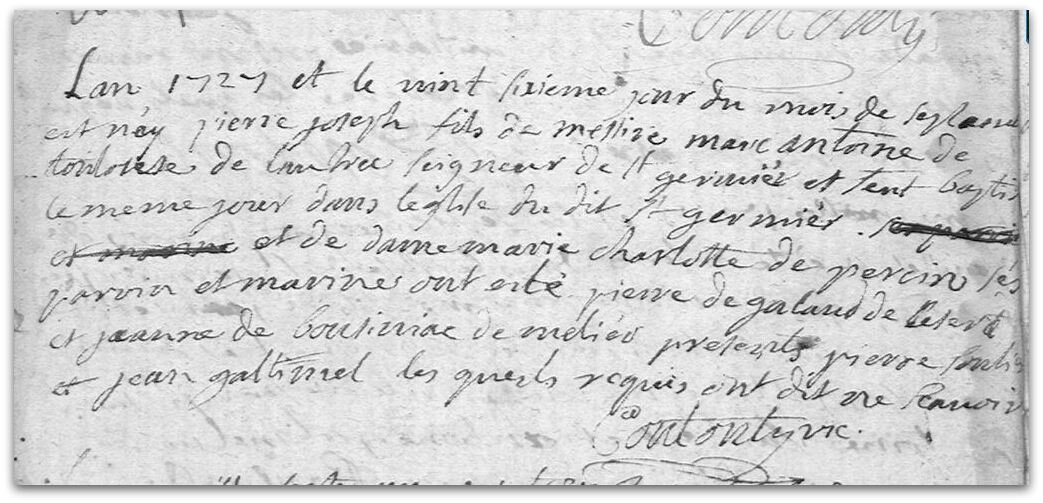 Lan 1727 et le vint sixieme jour du mois de septem
est néy pierre joseph fils de messire marc antoine de
toulouse de lautrec seigneur de st germiér et feut baptis
le meme jour dans leglise du dit st germiér.
et de dame marie charlotte de percin ses
parvin et marine ont esté pierre de galaud de
et jeanne de de presents pierre
et jean les quels requis ont dit ne scavoir